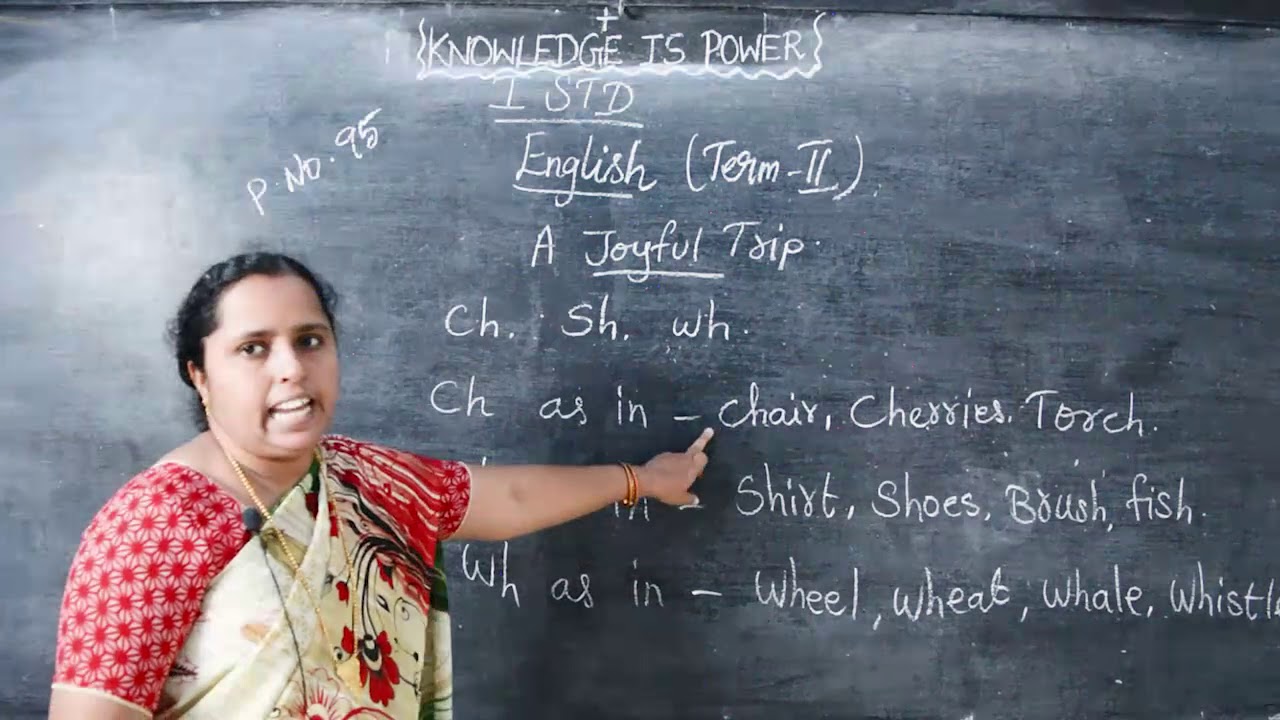 {KNOWLEDGE IS POWER}
I STD
P. No. 95
English (Term-II).
A Joyful Trip.
Ch. Sh. wh.
Ch as in - Chair, Cherries. Torch.
in - Shirt, Shoes, Brush, fish.
Wh as in - Wheel, wheat, whale, whistle